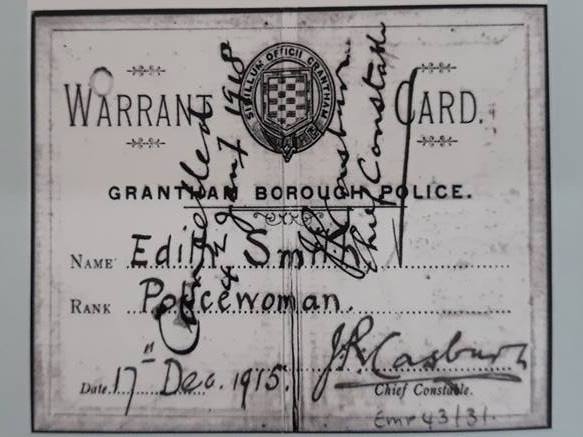 SIGILLUM OFFICII GRANTHAM
WARRANT CARD.
GRANTHAM BOROUGH POLICE.
NAME Edith Smith
RANK Policewoman.
Date 17th Dec. 1915.
J.R. Casburn
Chief Constable.
Emp 43/31.
Cancelled
4th Jan 1918
J R Casburn
Chief Constable